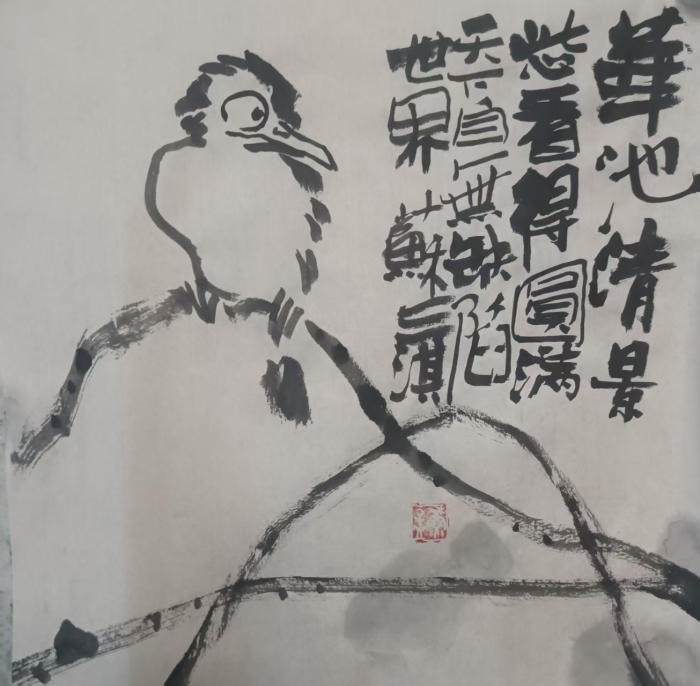 華池清景
此心看得圓滿
天下自無缺陷
世界 蘇